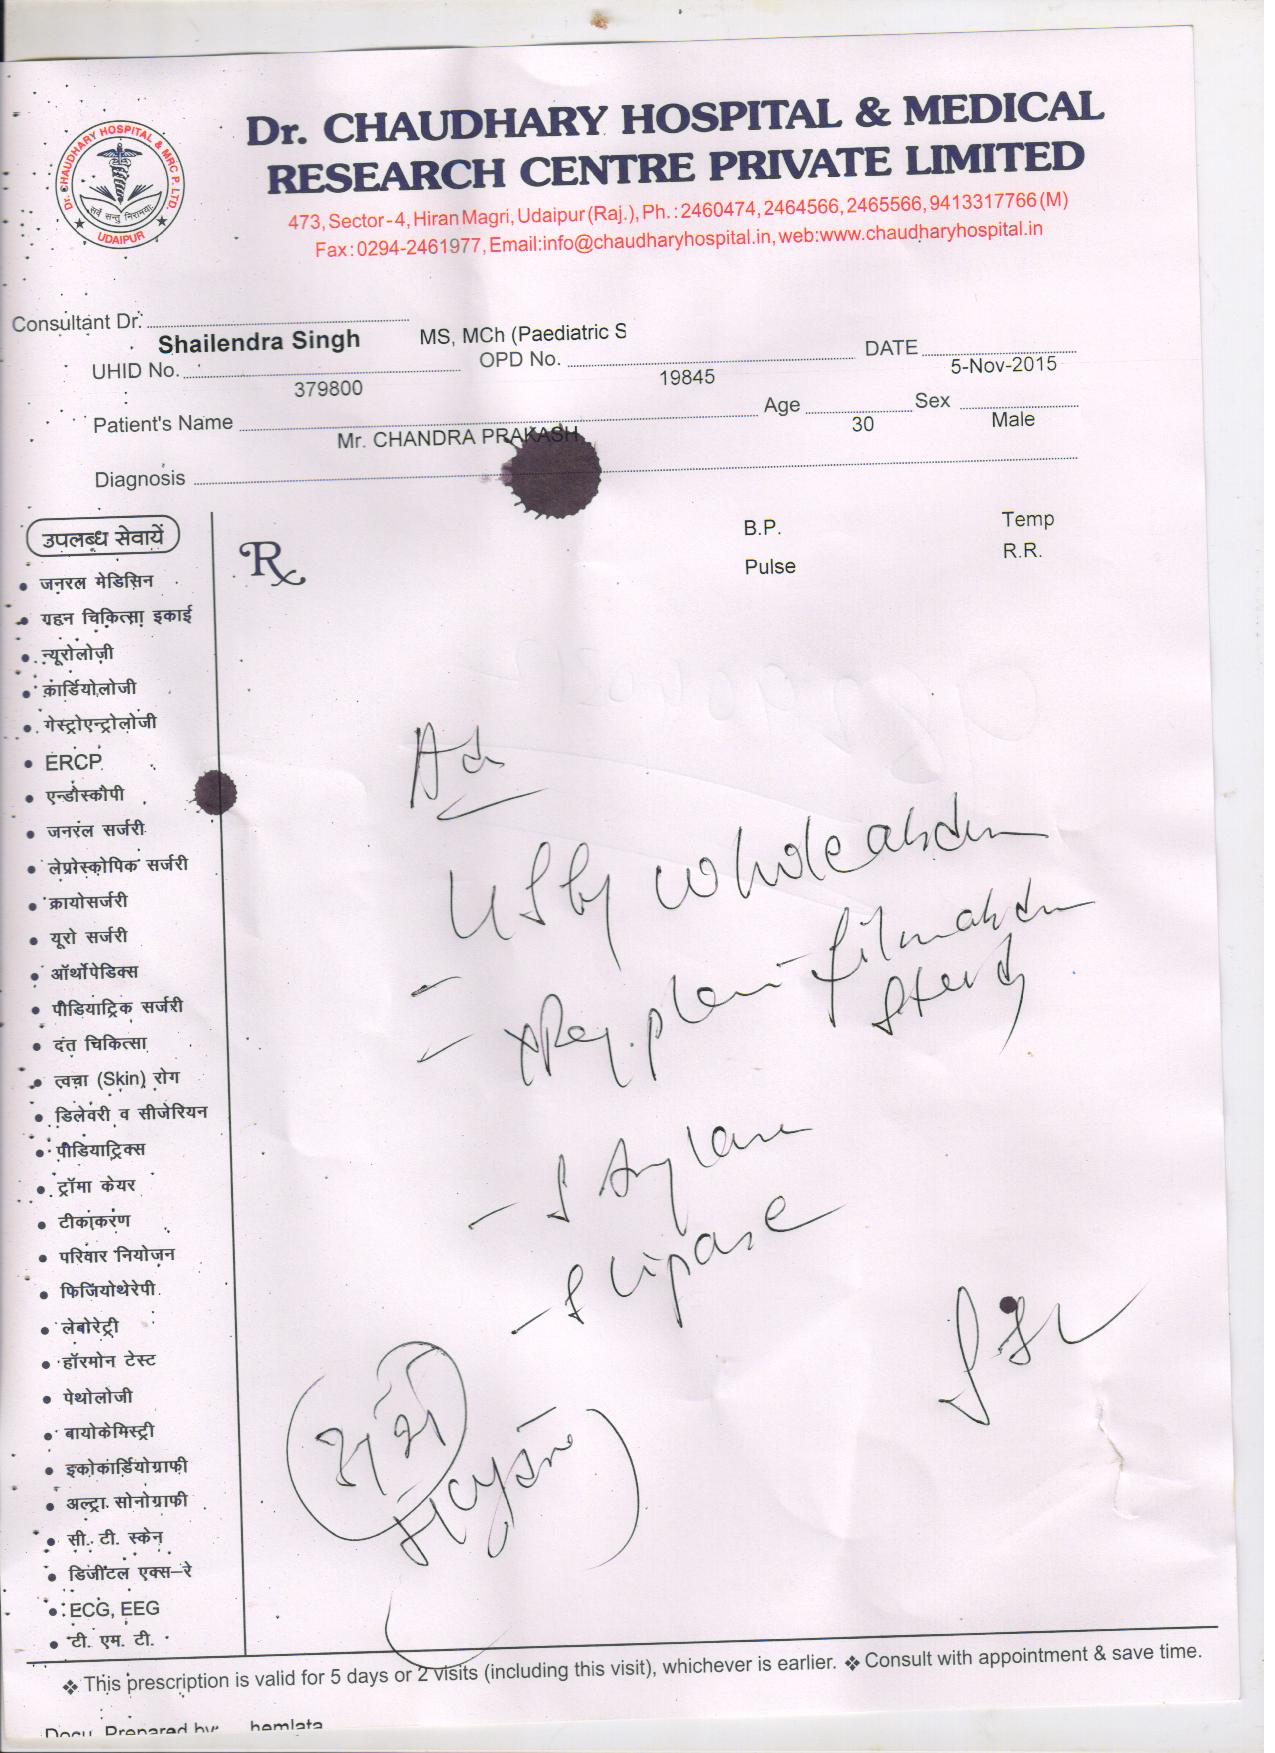 Dr. CHAUDHARY HOSPITAL & MRC P. LTD.
सर्वे सन्तु निरामया:
UDAIPUR
Dr. CHAUDHARY HOSPITAL & MEDICAL
RESEARCH CENTRE PRIVATE LIMITED
473, Sector-4, Hiran Magri, Udaipur (Raj.), Ph. : 2460474, 2464566, 2465566, 9413317766 (M)
Fax : 0294-2461977, Email:info@chaudharyhospital.in, web:www.chaudharyhospital.in
Consultant Dr.
Shailendra Singh MS, MCh (Paediatric S
UHID No. OPD No. DATE
379800 19845 5-Nov-2015
Patient's Name Age Sex
Mr. CHANDRA PRAKASH 30 Male
Diagnosis
B.P. Temp
Pulse R.R.
Rx
उपलब्ध सेवायें
• जनरल मेडिसिन
• गहन चिकित्सा इकाई
• न्यूरोलोजी
• कार्डियोलोजी
• गेस्ट्रोएन्ट्रोलोजी
• ERCP
• एन्डोस्कोपी
• जनरल सर्जरी
• लेप्रोस्कोपिक सर्जरी
• क्रायोसर्जरी
• यूरो सर्जरी
• ऑर्थोपेडिक्स
• पीडियाट्रिक सर्जरी
• दंत चिकित्सा
• त्वचा (Skin) रोग
• डिलेवरी व सीजेरियन
• पीडियाट्रिक्स
• ट्रॉमा केयर
• टीकाकरण
• परिवार नियोजन
• फिजियोथेरेपी
• लेबोरेट्री
• हॉरमोन टेस्ट
• पेथोलोजी
• बायोकेमिस्ट्री
• इकोकार्डियोग्राफी
• अल्ट्रा सोनोग्राफी
• सी. टी. स्केन
• डिजीटल एक्स-रे
• ECG, EEG
• टी. एम. टी.
Ad
USG whole abdm
- XRay. plain - film abdm
- S Amylase
- S lipase
❖ This prescription is valid for 5 days or 2 visits (including this visit), whichever is earlier. ❖ Consult with appointment & save time.
Docu. Prepared by: hemlata